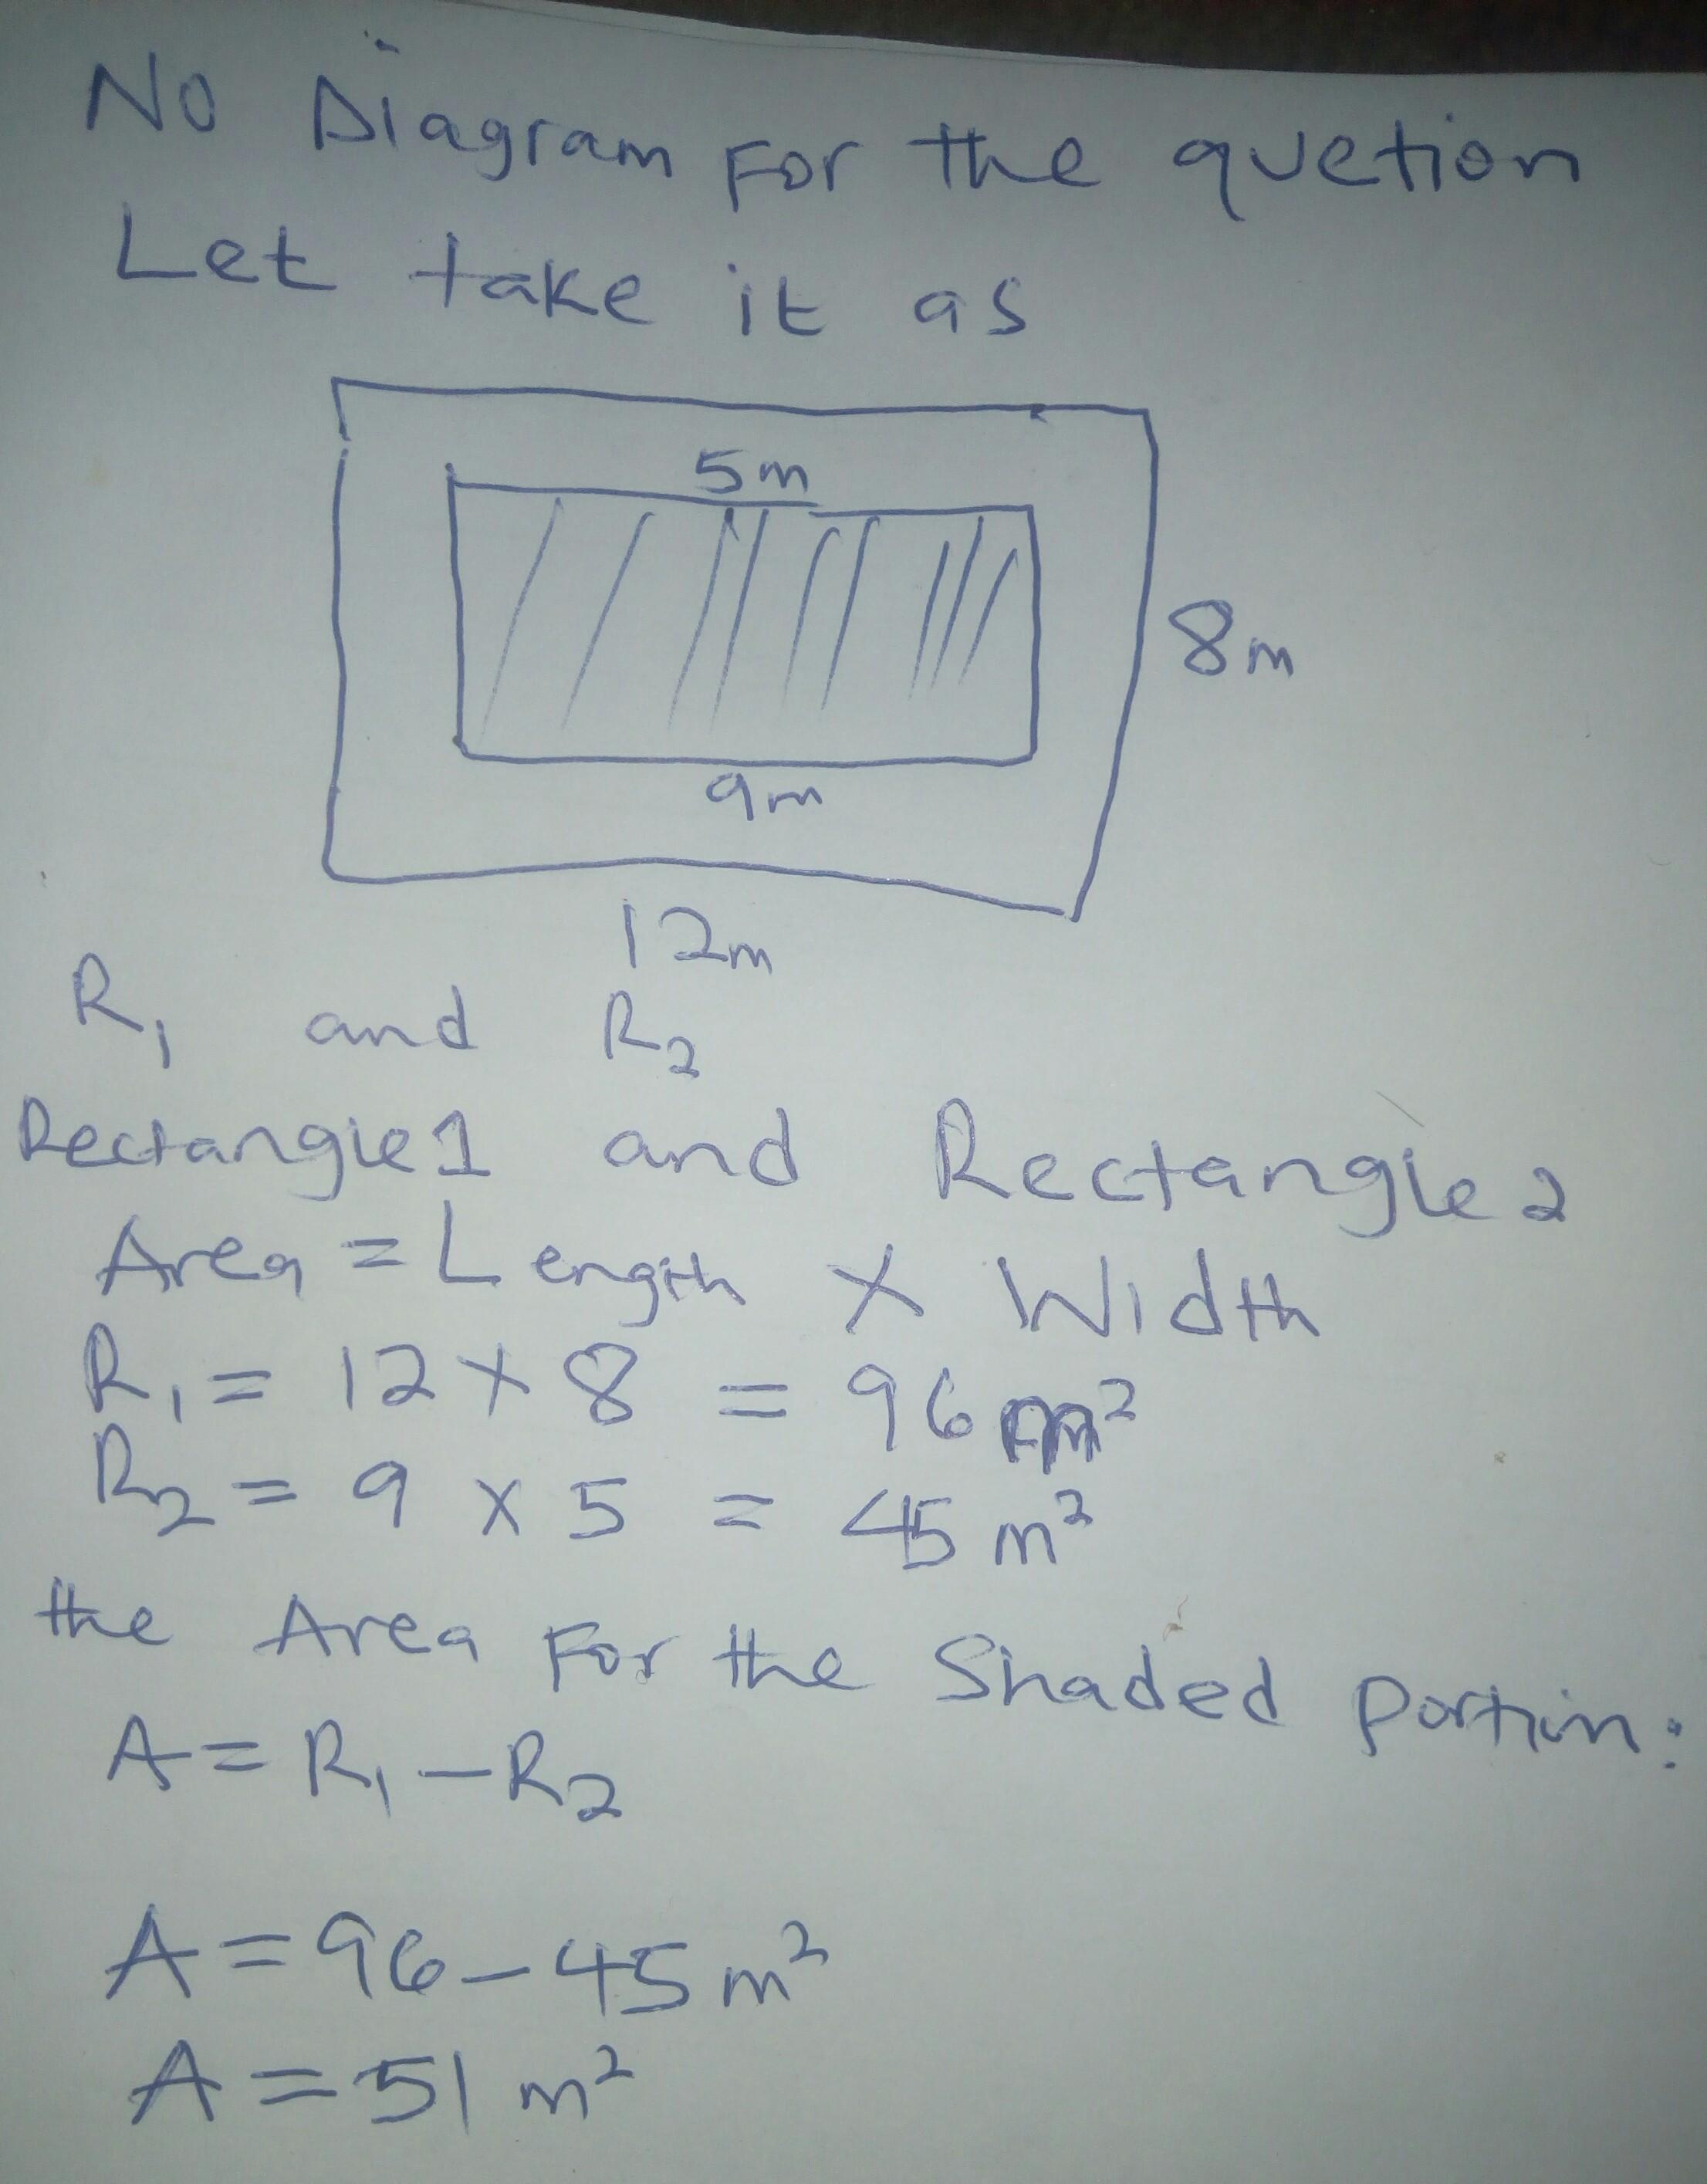 No Diagram For the quetion
Let take it as
5m
8m
9m
12m
R₁ and R₂
Rectangle 1 and Rectangle 2
Area = Length × Width
R₁ = 12 × 8 = 96 m²
R₂ = 9 × 5 = 45 m²
the Area For the Shaded Portion:
A = R₁ - R₂
A = 96 - 45 m²
A = 51 m²